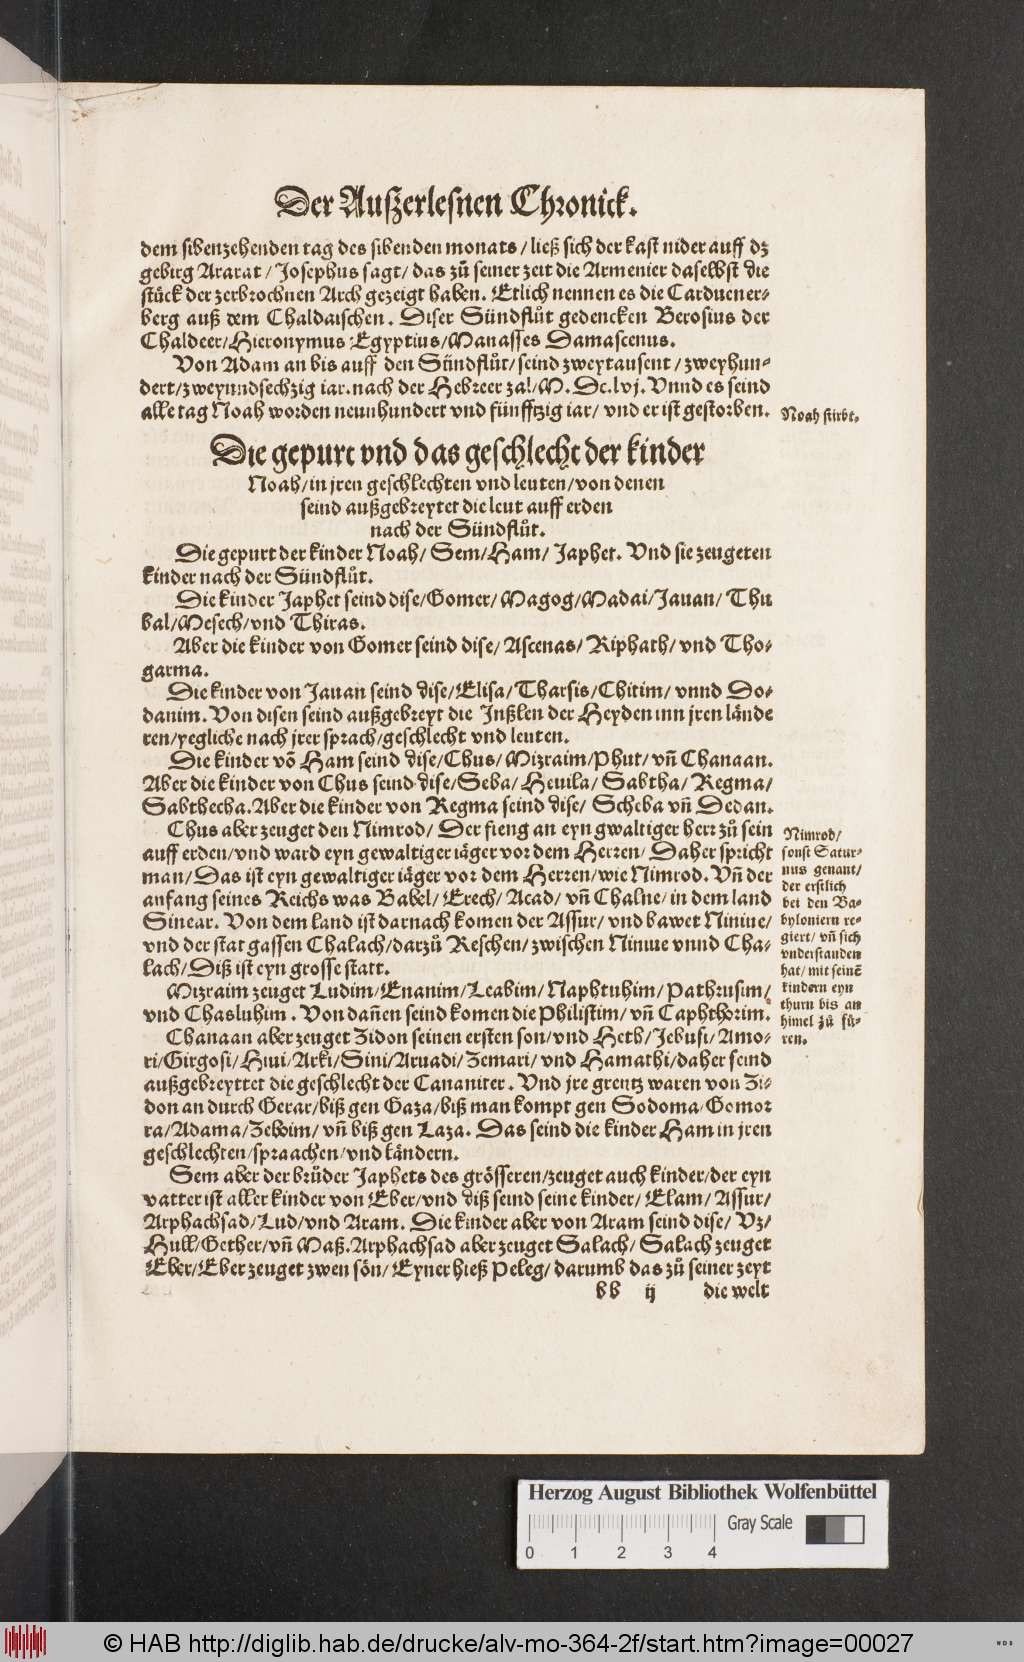 Der Außerlesnen Chronick.
dem sibenzehenden tag des sibenden monats / ließ sich der kast nider auff dz
gebirg Ararat / Josephus sagt / das zů seiner zeit die Armenier daselbst die
stück der zerbrochnen Arch gezeigt haben. Etlich nennen es die Carduener-
berg auß dem Chaldaischen. Diser Sündflůt gedencken Berosius der
Chaldeer/Hieronymus Egyptius/Manasses Damascenus.
Von Adam an bis auff den Sündflůt/ seind zweytausent / zweyhun-
dert/zweyunndsechzig iar. nach der Hebreer zal/M. Dc.lvj. Vnnd es seind
alle tag Noah worden neunhundert vnd fünfftzig iar/ vnd er ist gestorben.
Noah stirbt.
Die gepurt vnd das geschlecht der kinder
Noah/in jren geschlechten vnd leuten/von denen
seind außgebreytet die leut auff erden
nach der Sündflůt.
Die gepurt der kinder Noah/ Sem/Ham/ Japhet. Vnd sie zeugeten
kinder nach der Sündflůt.
Die kinder Japhet seind dise/Gomer/ Magog/Madai/Jauan/ Thu
bal/Mesech/vnd Thiras.
Aber die kinder von Gomer seind dise/ Ascenas/ Riphath/ vnd Tho-
garma.
Die kinder von Jauan seind dise/Elisa/Tharsis/Chitim/ vnnd Do-
danim. Von disen seind außgebreyt die Jnßlen der Heyden inn jren lände
ren/yegliche nach jrer sprach/geschlecht vnd leuten.
Die kinder võ Ham seind dise/Chus/Mizraim/Phut/ vñ Chanaan.
Aber die kinder von Chus seind dise/Seba/ Heuila/ Sabtha/ Regma/
Sabthecha. Aber die kinder von Regma seind dise/ Scheba vñ Dedan.
Chus aber zeuget den Nimrod/ Der fieng an eyn gwaltiger herr zů sein
auff erden/vnd ward eyn gewaltiger iäger vor dem Herren/ Daher spricht
man/Das ist eyn gewaltiger iäger vor dem Herren/wie Nimrod. Vñ der
anfang seines Reichs was Babel/ Erech/ Acad/ vñ Chalne/ in dem land
Sinear. Von dem land ist darnach komen der Assur/ vnd bawet Niniue/
vnd der stat gassen Chalach/darzů Reschen/ zwischen Niniue vnnd Cha-
lach/Diß ist eyn grosse statt.
Nimrod/
sonst Satur-
nus genant/
der erstlich
bei den Ba-
byloniern re-
giert/ vñ sich
vnderstanden
hat/ mit seinẽ
kindern eyn
thurn bis an
himel zů fü-
ren.
Mizraim zeuget Ludim/Enanim/Leabim/ Naphtuhim/ Pathrusim/
vnd Chasluhim. Von dañen seind komen die Philistim/ vñ Caphthorim.
Chanaan aber zeuget Zidon seinen ersten son/vnd Heth/Jebusi/ Amo-
ri/Girgosi/Hiui/Arki/Sini/Aruadi/Zemari/ vnd Hamathi/daher seind
außgebreyttet die geschlecht der Cananiter. Vnd jre grentz waren von Zi-
don an durch Gerar/biß gen Gaza/biß man kompt gen Sodoma/Gomor
ra/Adama/Zeboim/ vñ biß gen Laza. Das seind die kinder Ham in jren
geschlechten/spraachen/vnd ländern.
Sem aber der brůder Japhets des grösseren/zeuget auch kinder/der eyn
vatter ist aller kinder von Eber/vnd diß seind seine kinder/ Elam/ Assur/
Arphachsad/Lud/vnd Aram. Die kinder aber von Aram seind dise/ Vz/
Hull/Gether/vñ Maß. Arphachsad aber zeuget Salach/ Salach zeuget
Eber/Eber zeuget zwen sön/ Eyner hieß Peleg/ darumb das zů seiner zeyt
bb ij die welt
Herzog August Bibliothek Wolfenbüttel
Gray Scale
0 1 2 3 4
© HAB http://diglib.hab.de/drucke/alv-mo-364-2f/start.htm?image=00027